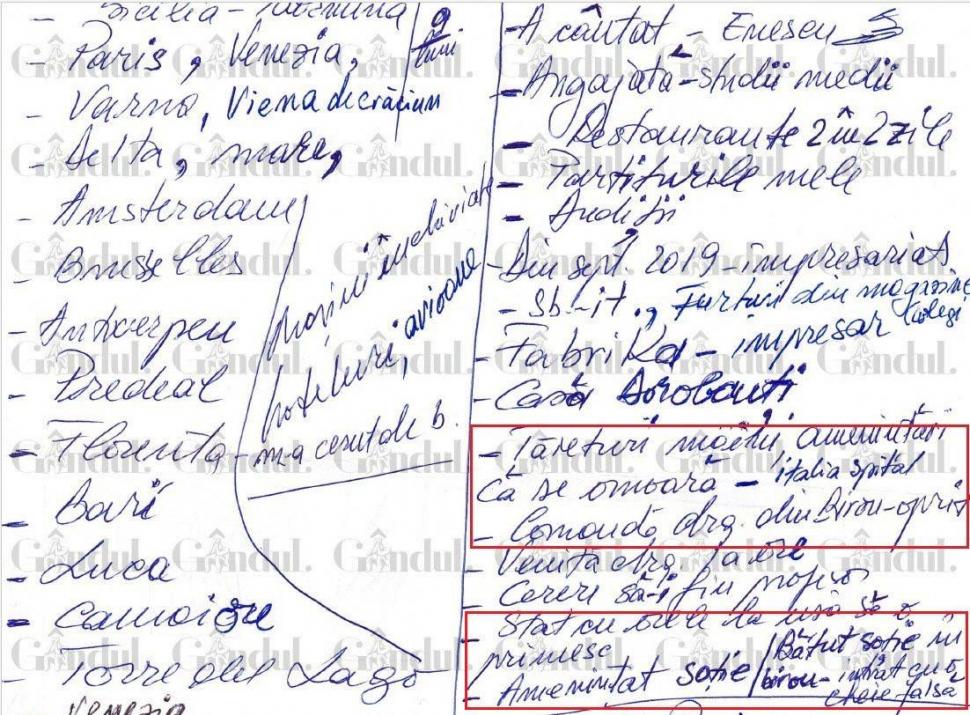 Sicilia - Taormina
- Paris, Venezia, 9 luni
- Varna, Viena de crăciun
- Delta, mare,
- Amsterdam
- Bruselles
- Antwerpen
- Predeal
- Florența
- Bari
- Luca
- Camoiore
- Torre del Lago
Venezia
mașini închiriate
hoteluri, avioane
m-a cerut de b.
- A cântat - Enescu
- Angajată - studii medii
- Restaurante 2 în 2 zile
- Partiturile mele
- Audiții
- Din sept. 2019 - impresariat
- Sb-it., Furturi din magazine
colegi
- Fabrika - impresar
- Casă Dorobanți
- Tăieturi mâini, amenințări
că se omoară - italia spital
- Comandă drg. din Birou - oprit
- Venită drg. la ore
- Cereri să-i fiu
- Stat cu orele la ușă să o
primesc
- Amenințat soție / Bătut soție în
birou - intrat cu o
cheie falsă
Gândul.